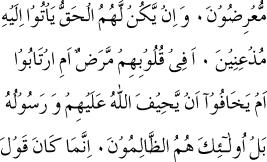 مُّعْرِضُوْنَ ۰ وَ اِنْ يَّكُنْ لَّهُمُ الْحَقُّ يَاْتُوْٓا اِلَيْهِ
مُذْعِنِيْنَ ۰ اَ فِىْ قُلُوْبِهِمْ مَّرَضٌ اَمِ ارْتَابُوْٓا
اَمْ يَخَافُوْٓا اَنْ يَّحِيْفَ اللّٰهُ عَلَيْهِمْ وَ رَسُوْلُهٗ
بَلْ اُولٰٓئِكَ هُمُ الظَّالِمُوْنَ ۰ اِنَّمَا كَانَ قَوْلَ